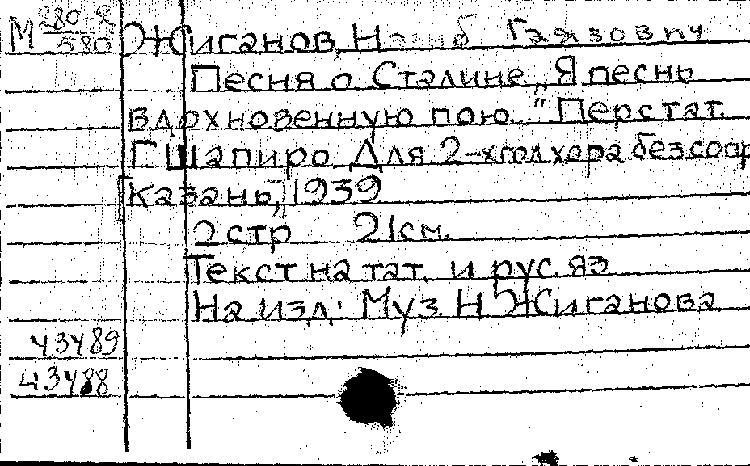 М 280-2/580 Жиганов, Назиб Гаязович
Песня о Сталине „Я песнь
вдохновенную пою..." Пер с тат.
Г. Шапиро. Для 2-хгол хора без сопр
Казань, 1939
2 стр 21 см.
Текст на тат. и рус. яз
На изд: Муз Н Жиганова
43489
43488